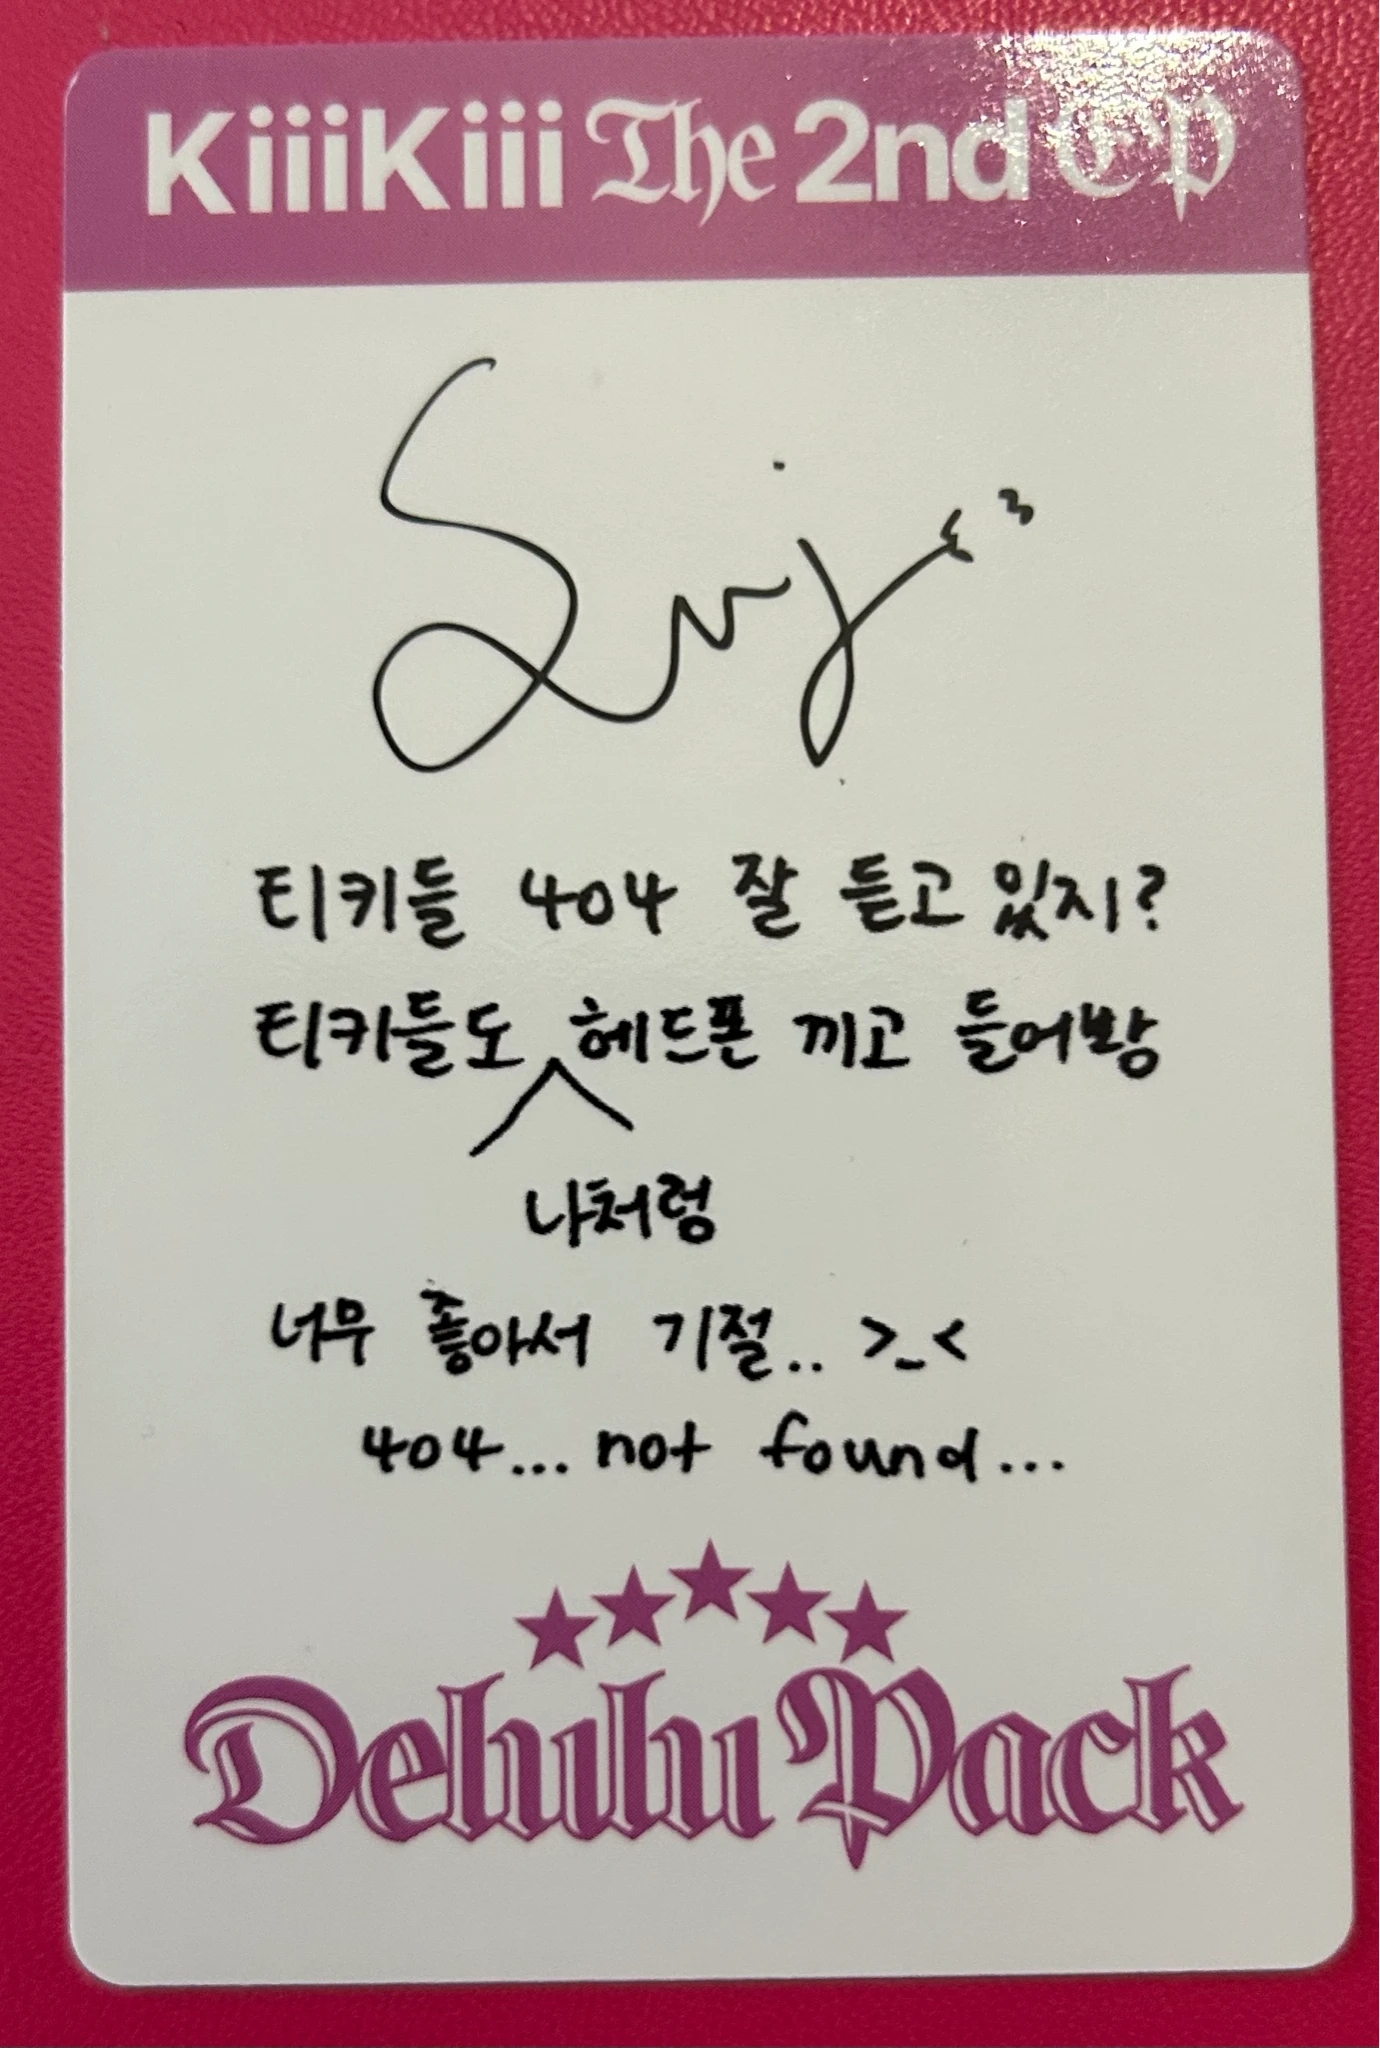 KiiiKiii The 2nd EP
티키들 404 잘 듣고 있지?
티키들도 헤드폰 끼고 들어방
나처럼
너무 좋아서 기절.. >_<
404... not found...
Delulu Pack